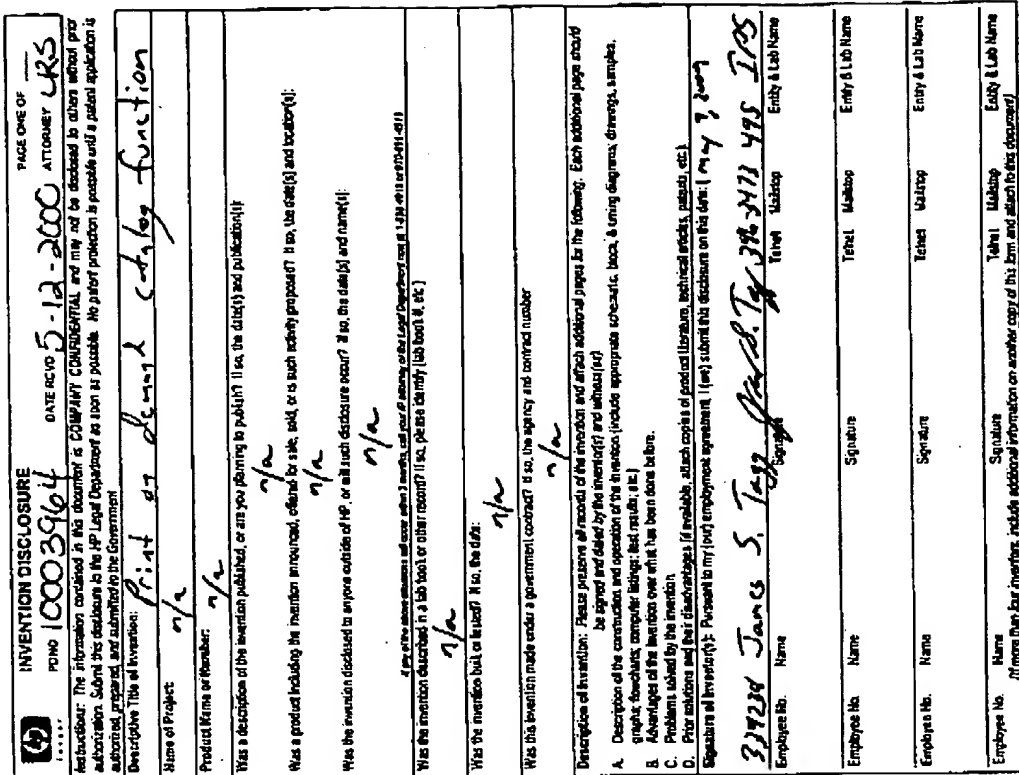 hp
INVENTION DISCLOSURE
PAGE ONE OF
PDNO 10003964 DATE RCVD 5-12-2000 ATTORNEY LRS
Instructions: The information contained in this document is COMPANY CONFIDENTIAL and may not be disclosed to others without prior
authorization. Submit this disclosure to the HP Legal Department as soon as possible. No patent protection is possible until a patent application is
authorized, prepared, and submitted to the Government
Descriptive Title of Invention:
Print on demand catalog function
Name of Project:
n/a
Product Name or Number:
n/a
Was a description of the invention published, or are you planning to publish? If so, the date(s) and publication(s):
n/a
Was a product including the invention announced, offered for sale, sold, or is such activity proposed? If so, the date(s) and location(s):
n/a
Was the invention disclosed to anyone outside of HP, or will such disclosure occur? If so, the date(s) and name(s):
n/a
If any of the above situations will occur within 3 months, call your IP attorney or the Legal Department now at
Was the invention described in a lab book or other record? If so, please identify (lab book #, etc.)
n/a
Was the invention built or tested? If so, the date:
n/a
Was this invention made under a government contract? If so, the agency and contract number:
n/a
Description of Invention: Please preserve all records of the invention and attach additional pages for the following. Each additional page should
be signed and dated by the inventor(s) and witness(es)
A. Description of the construction and operation of the invention (include appropriate schematic, block, & timing diagrams; drawings, samples,
graphs; flowcharts; computer listings; test results; etc.)
B. Advantages of the invention over what has been done before.
C. Problems solved by the invention
D. Prior solutions and their disadvantages (if available, attach copies of product literature, technical articles, patents, etc.)
Signature of Inventor(s): Pursuant to my (our) employment agreement, I (we) submit this disclosure on this date: (May 9,
339234 James S. Tagg 396-2473 495 IPS
Employee No. Name Signature Telnet Mailstop Entity & Lab Name
Employee No. Name Signature Telnet Mailstop Entity & Lab Name
Employee No. Name Signature Telnet Mailstop Entity & Lab Name
Employee No. Name Signature Telnet Mailstop Entity & Lab Name
(If more than four inventors, include additional information on another copy of this form and attach to this document)